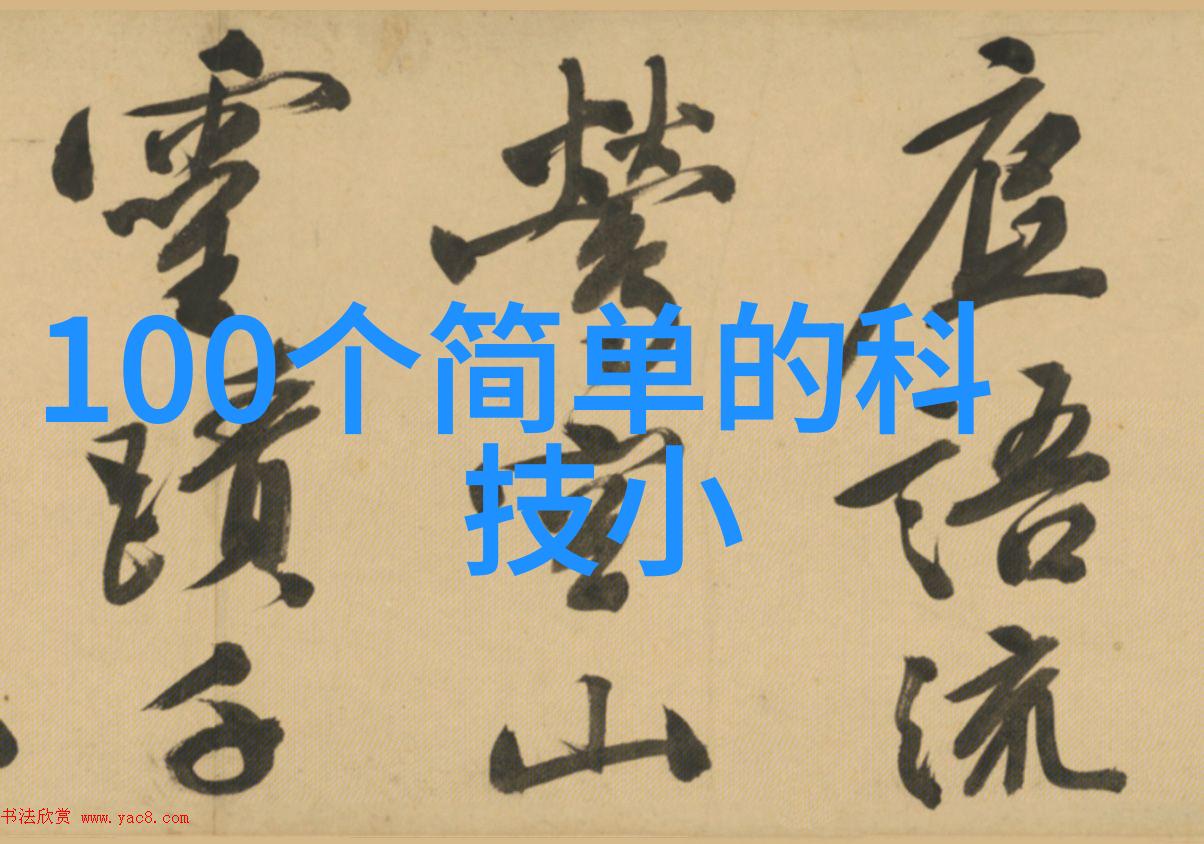 100个简单的科
技小
語流
山
靈蹟千
书法欣赏 www.yac8.com